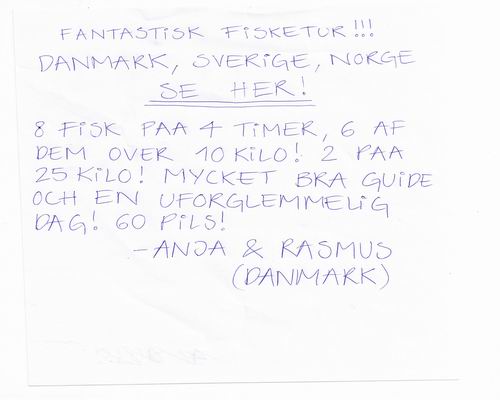 FANTASTISK FISKETUR!!!
DANMARK, SVERIGE, NORGE
SE HER!
8 FISK PAA 4 TIMER, 6 AF
DEM OVER 10 KILO! 2 PAA
25 KILO! MYCKET BRA GUIDE
OCH EN UFORGLEMMELIG
DAG! 60 PILS!
-ANJA & RASMUS
(DANMARK)